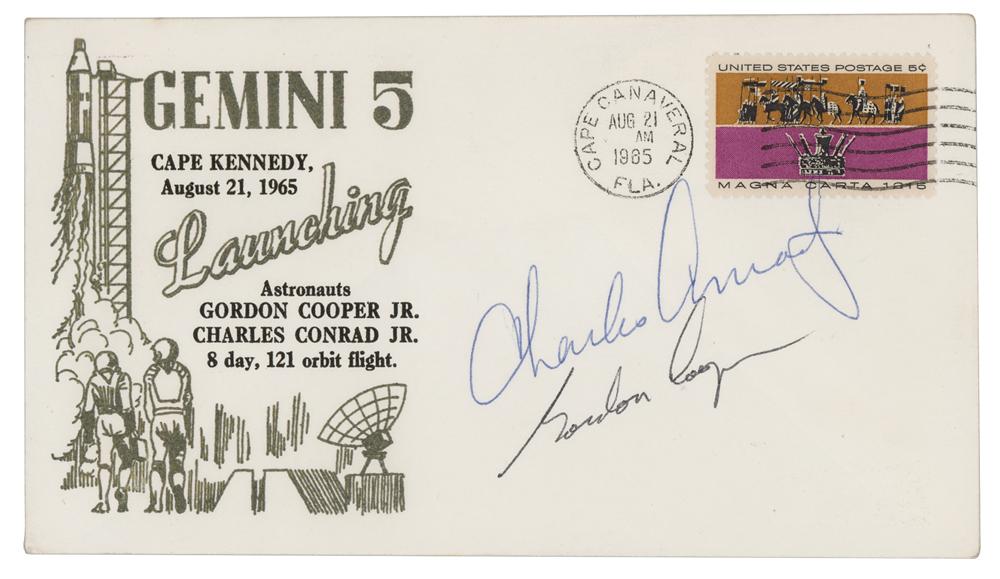 GEMINI 5
CAPE KENNEDY,
August 21, 1965
Launching
Astronauts
GORDON COOPER JR.
CHARLES CONRAD JR.
8 day, 121 orbit flight.
CAPE CANAVERAL
AUG 21
AM
1965
FLA.
UNITED STATES POSTAGE 5¢
MAGNA CARTA 1215
Charles Conrad
Gordon Cooper